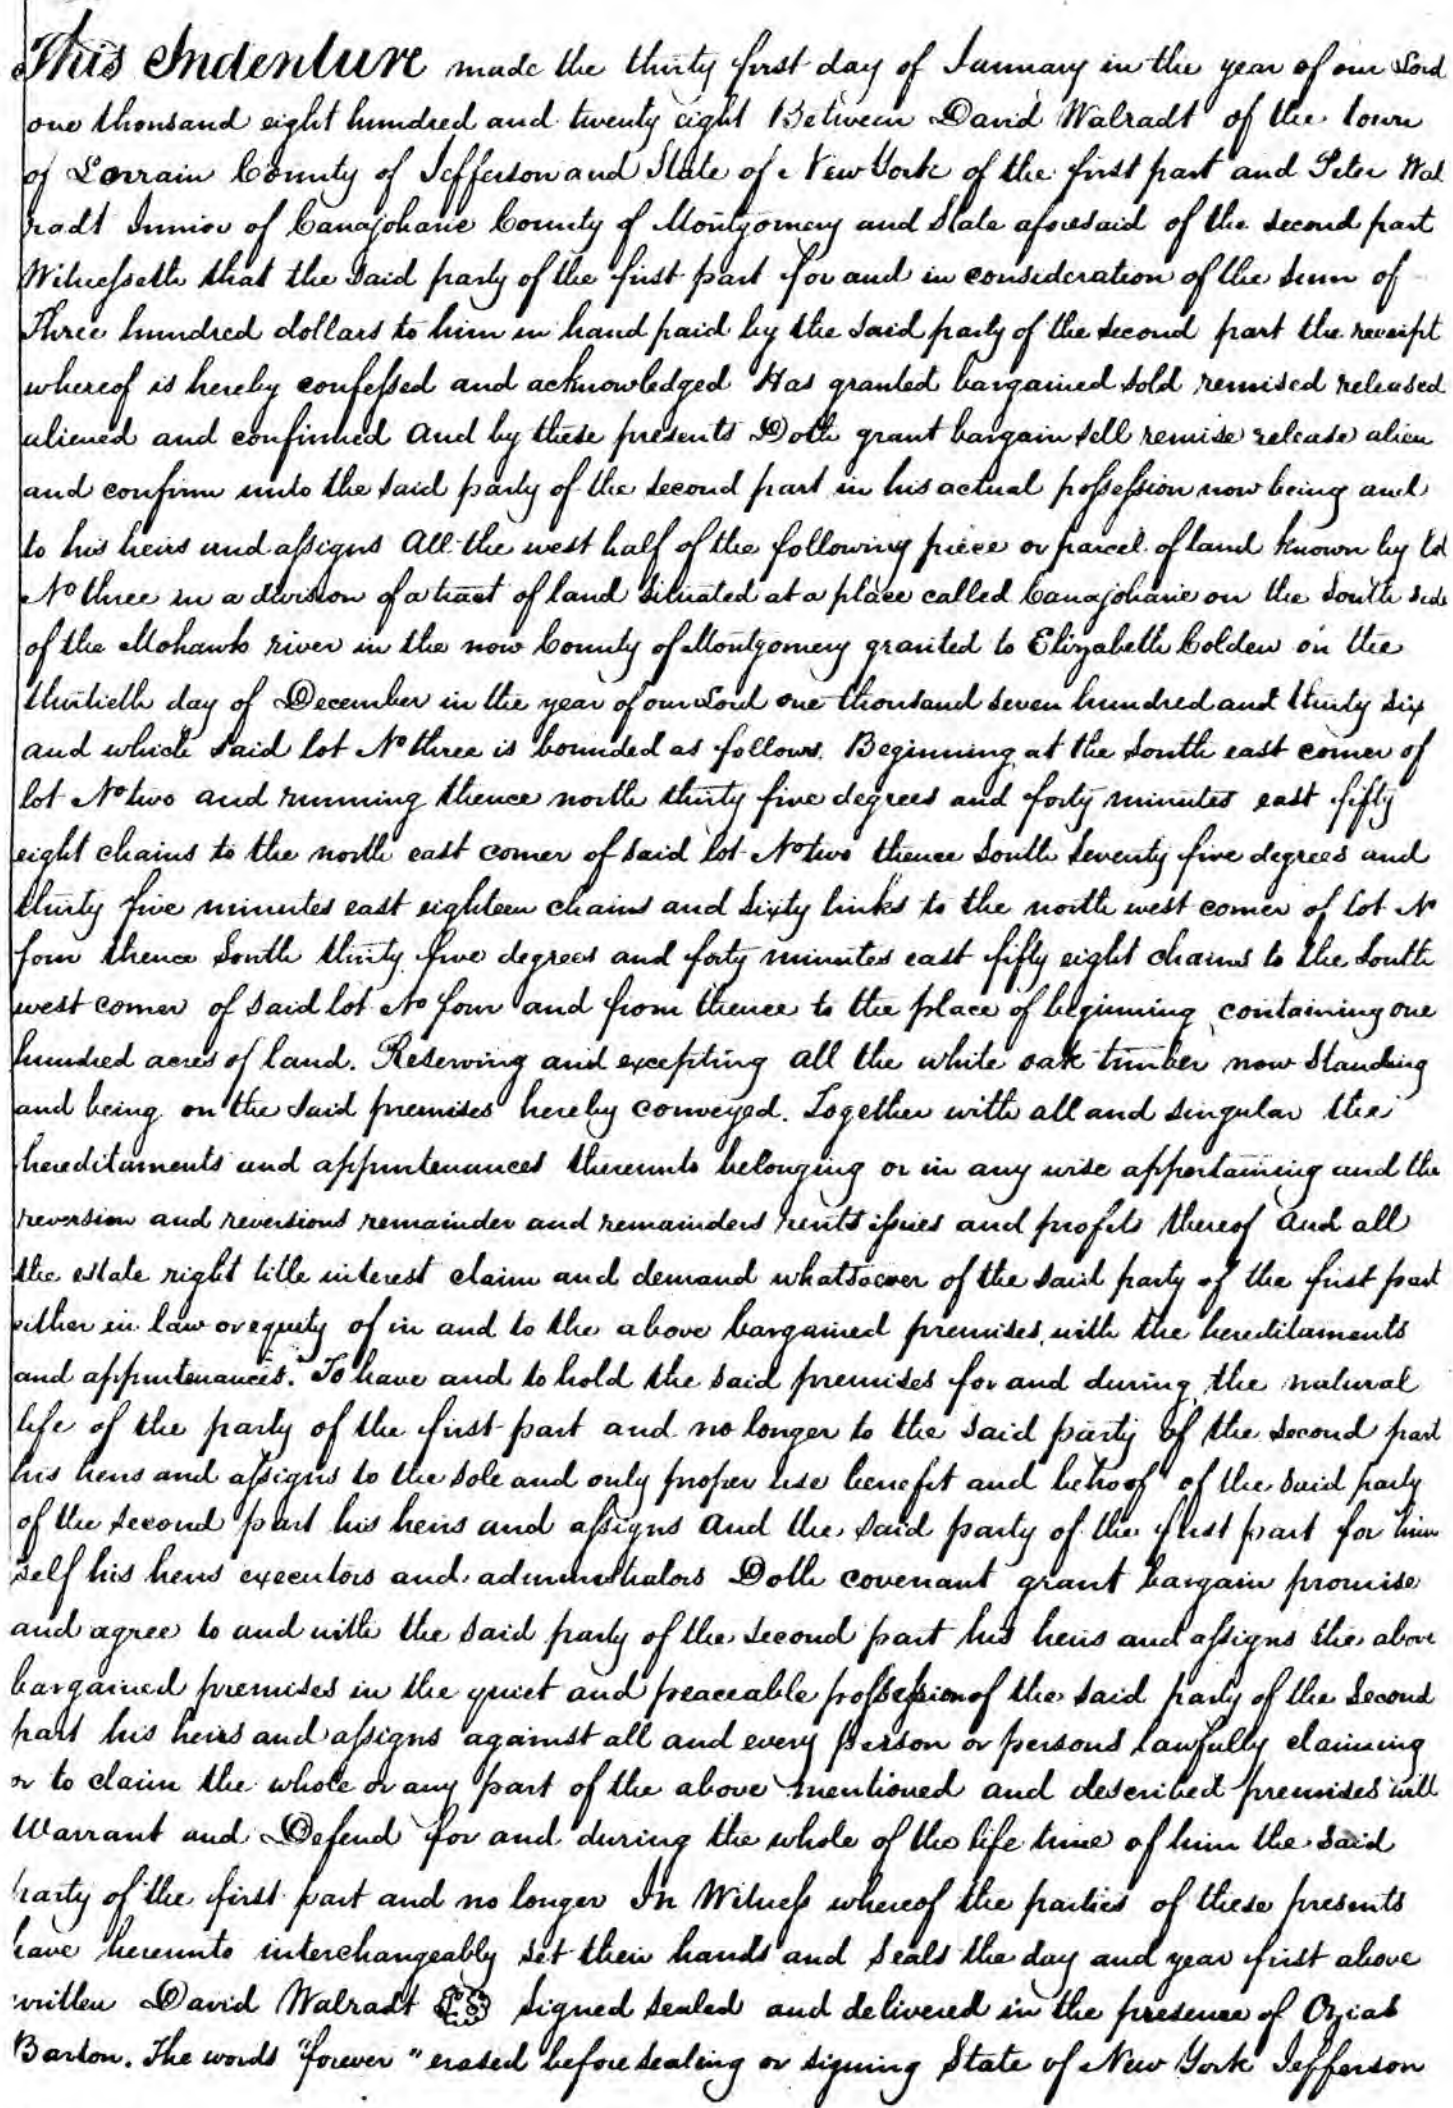 This Indenture made the thirty first day of January in the year of our Lord
one thousand eight hundred and twenty eight Between David Walradt of the town
of Lorrain County of Jefferson and State of New York of the first part and Peter Wal
radt Junior of Canajoharie County of Montgomery and State aforesaid of the second part
Witnesseth that the said party of the first part for and in consideration of the sum of
Three hundred dollars to him in hand paid by the said party of the second part the receipt
whereof is hereby confessed and acknowledged Has granted bargained sold remised released
aliened and confirmed And by these presents Doth grant bargain sell remise release alien
and confirm unto the said party of the second part in his actual possession now being and
to his heirs and assigns All the west half of the following piece or parcel of land known by lot
No three in a division of a tract of land situated at a place called Canajoharie on the South side
of the Mohawk river in the now County of Montgomery granted to Elizabeth Colden on the
thirtieth day of December in the year of our Lord one thousand seven hundred and thirty six
and which said lot No three is bounded as follows. Beginning at the South east corner of
lot No two and running thence north thirty five degrees and forty minutes east fifty
eight chains to the north east corner of said lot No two thence South Seventy five degrees and
thirty five minutes east eighteen chains and sixty links to the north west corner of lot No
four thence South thirty five degrees and forty minutes east fifty eight chains to the South
west corner of said lot No four and from thence to the place of beginning containing one
hundred acres of land. Reserving and excepting all the white oak timber now Standing
and being on the said premises hereby conveyed. Together with all and singular the
hereditaments and appurtenances thereunto belonging or in any wise appertaining and the
reversion and reversions remainder and remainders rents issues and profits thereof And all
the estate right title interest claim and demand whatsoever of the said party of the first part
either in law or equity of in and to the above bargained premises with the hereditaments
and appurtenances. To have and to hold the said premises for and during the natural
life of the party of the first part and no longer to the said party of the second part
his heirs and assigns to the sole and only proper use benefit and behoof of the said party
of the second part his heirs and assigns And the said party of the first part for him
self his heirs executors and administrators Doth covenant grant bargain promise
and agree to and with the said party of the second part his heirs and assigns the above
bargained premises in the quiet and peaceable possession of the said party of the Second
part his heirs and assigns against all and every person or persons lawfully claiming
or to claim the whole or any part of the above mentioned and described premises will
Warrant and Defend for and during the whole of the life time of him the said
party of the first part and no longer In Witness whereof the parties of these presents
have hereunto interchangeably set their hands and seals the day and year first above
written David Walradt L.S. Signed sealed and delivered in the presence of Ozias
Barton. The words "forever" erased before sealing or signing State of New York Jefferson